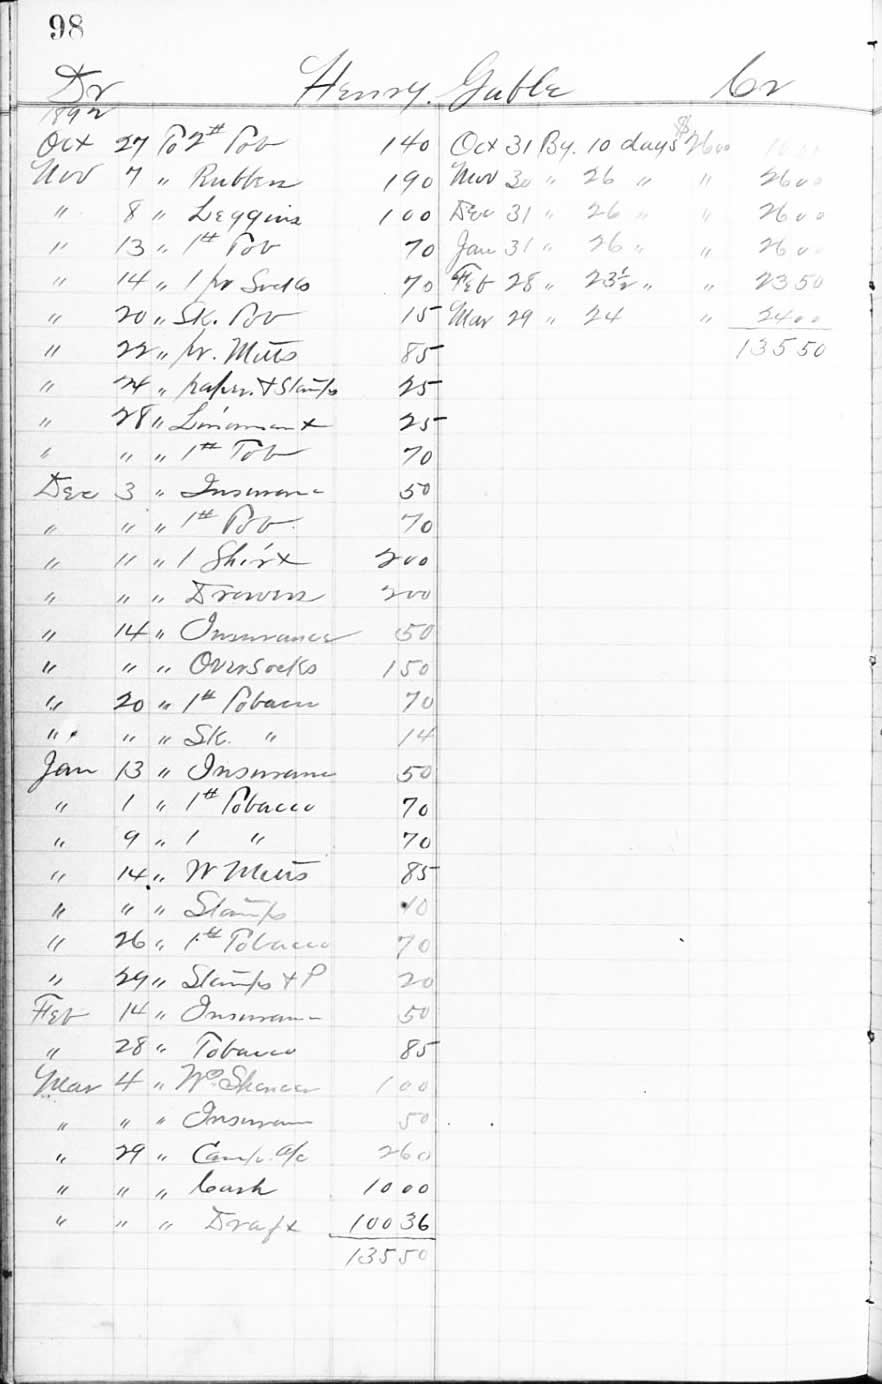 98
Dr Henry Gable Cr
1892
Oct 27 To 2# Tob 140 Oct 31 By. 10 days $2600 1000
Nov 7 " Rubbers 190 Nov 30 " 26 " " 2600
" 8 " Leggins 100 Dec 31 " 26 " " 2600
" 13 " 1# Tob 70 Jan 31 " 26 " " 2600
" 14 " 1 pr Socks 70 Feb 28 " 23½ " " 2350
" 20 " Sk. Tob 15 Mar 29 " 24 " 2400
" 22 " pr. Mitts 85 13550
" 24 " paper. & Stamps 25
" 28 " Liniment 25
" " " 1# Tob 70
Dec 3 " Insurance 50
" " " 1# Tob. 70
" " " 1 Shirt 200
" " " Drawers 200
" 14 " Insurance 50
" " " Oversocks 150
" 20 " 1# Tobacco 70
" " " Sk. " 14
Jan 13 " Insurance 50
" 1 " 1# Tobacco 70
" 9 " 1 " 70
" 14 " Mitts 85
" " " Stamps 10
" 26 " 1# Tobacco 70
" 29 " Stamps & P 20
Feb 14 " Insurance 50
" 28 " Tobacco 85
Mar 4 " Wm Spencer 100
" " " Insurance 50
" 29 " Camp. a/c 260
" " " Cash 1000
" " " Draft 10036
13550